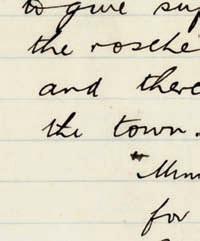 to give sup
the rosche
and there
the town.
"Mun
for